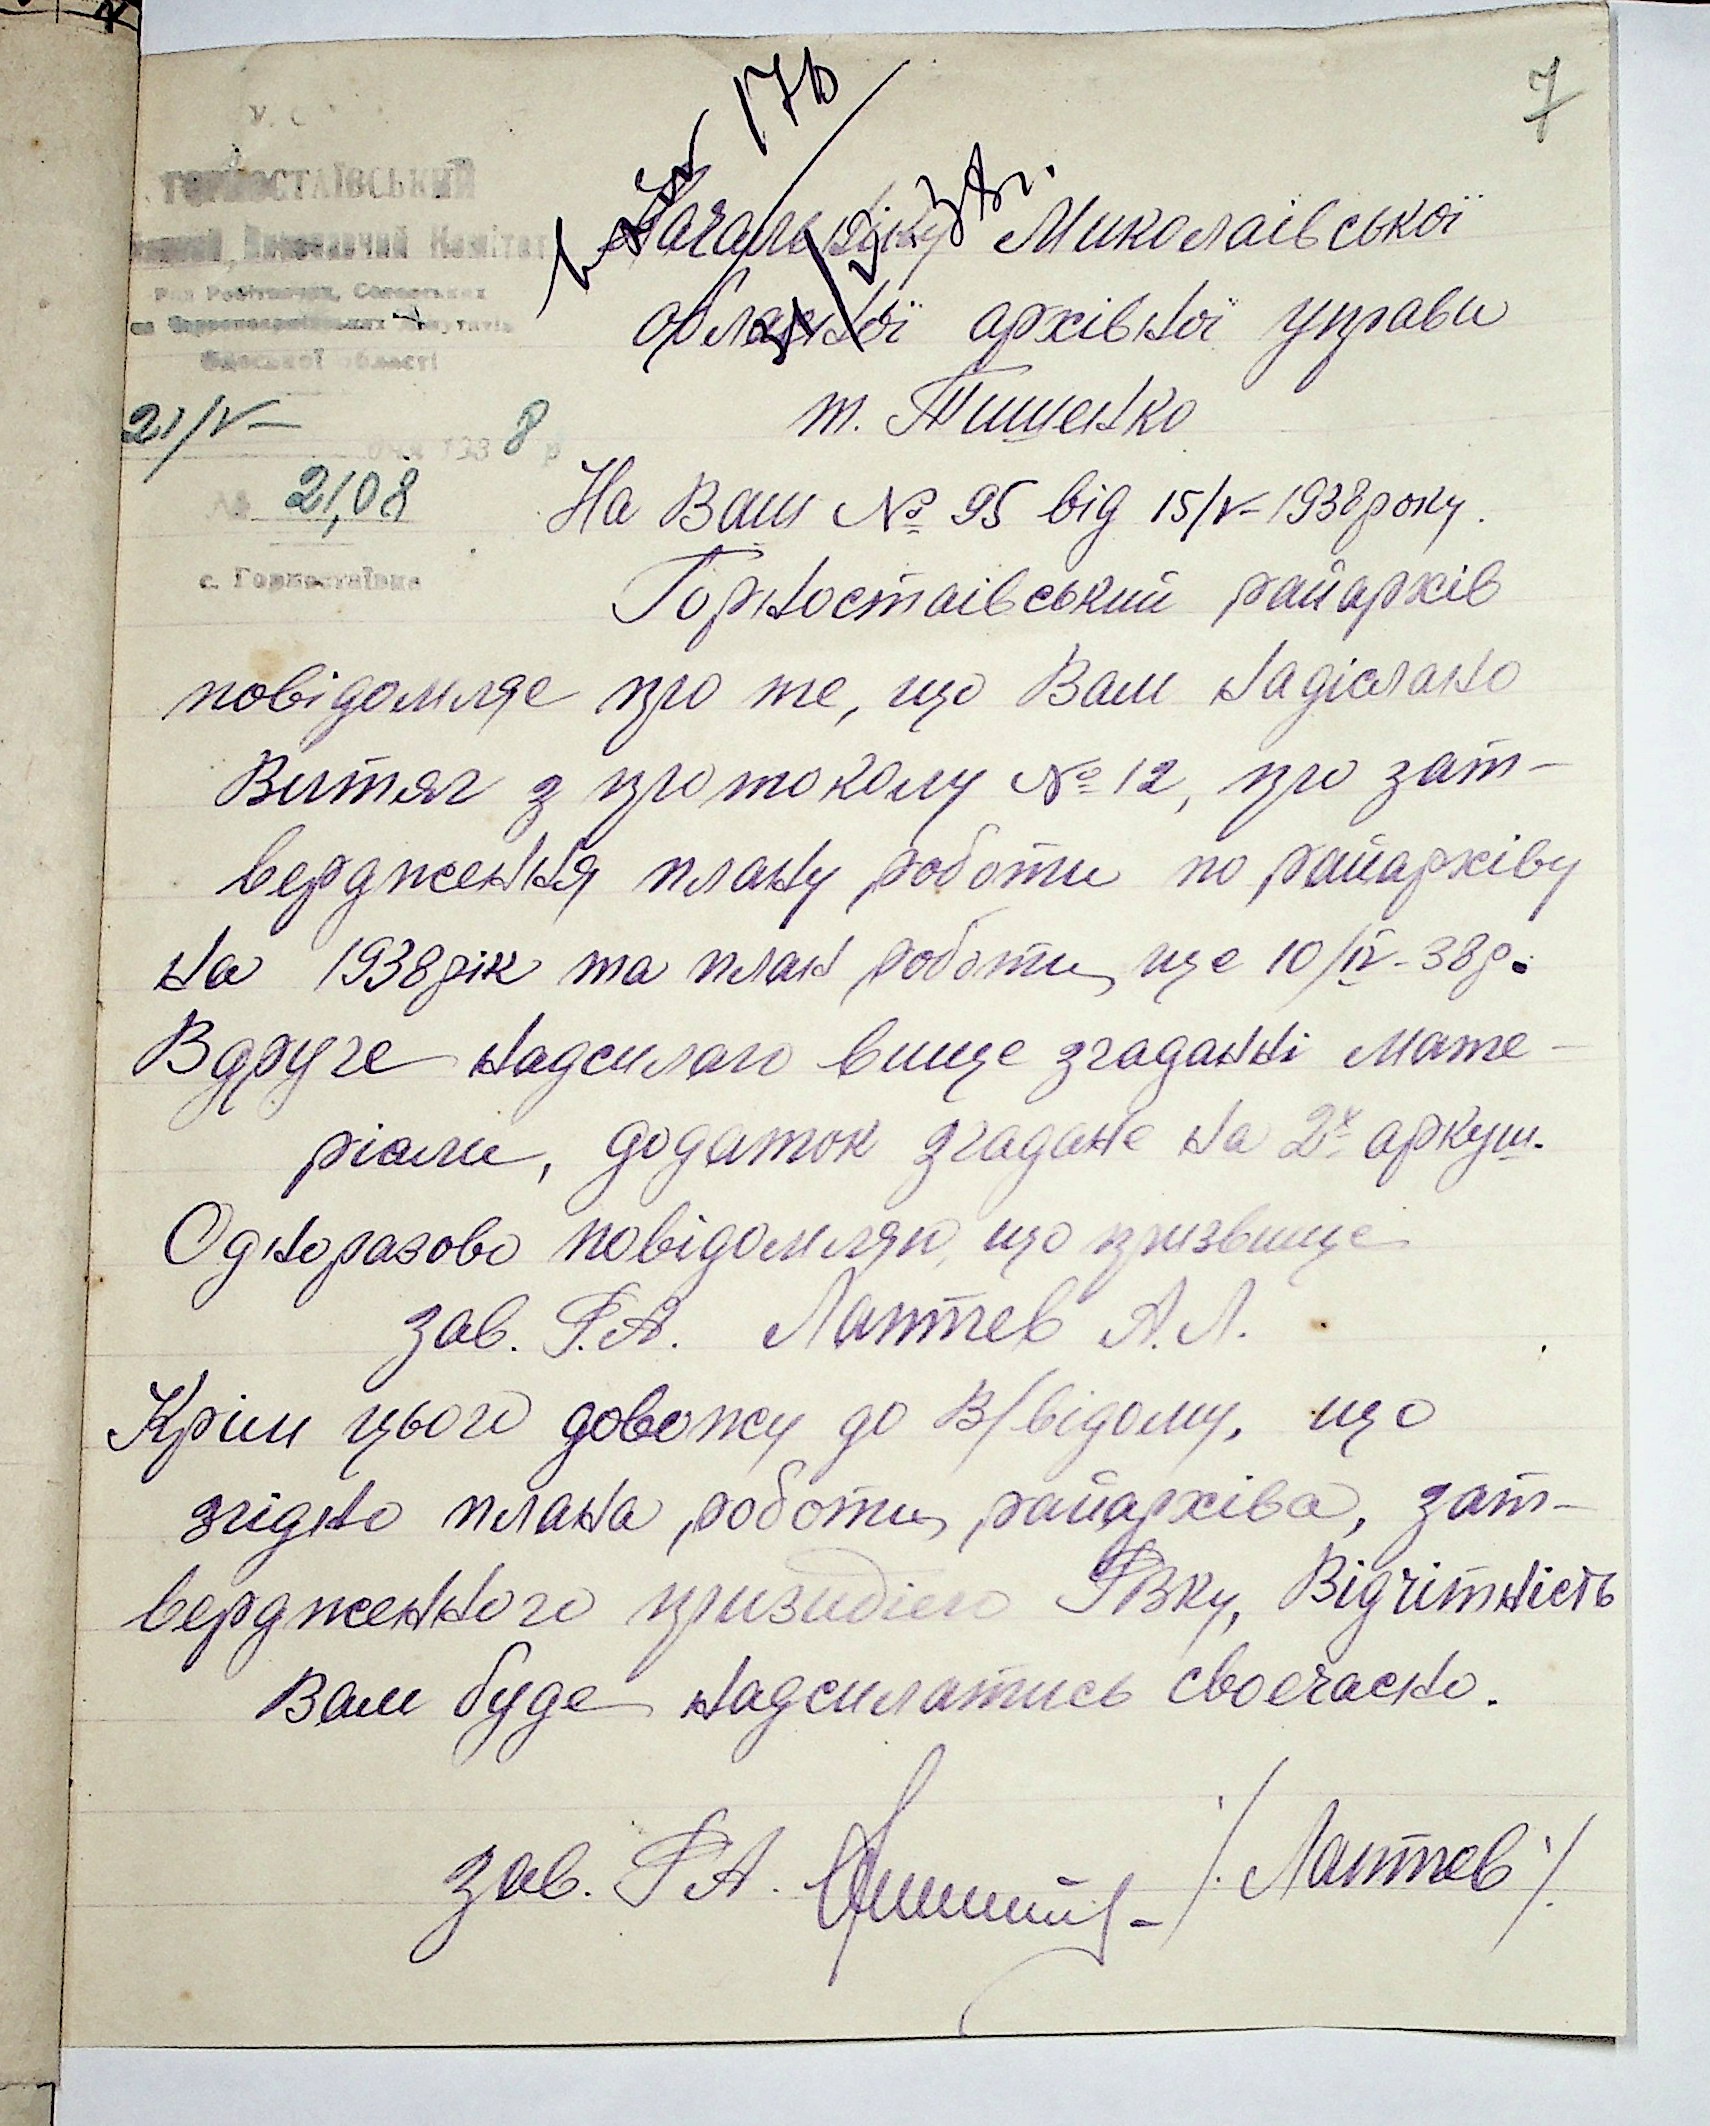 7
176
ГОРНОСТАЇВСЬКИЙ
Виконавчий Комітет
Рад Робітничих, Селянських
та Червоноармійських Депутатів
Одеської області
21/V – 1938 р
№ 21,08
с. Горностаївка
Начальніку Миколаівської
обласної архівної управи
т. Тищенко
На Ваш № 95 від 15/V – 1938 року.
Горностаівський райархів
повідомляє про те, що Вам надіслано
Витяг з протоколу № 12, про зат-
вердження плану роботи по райархіву
на 1938 рік та план роботи, ще 10/IV - 38 р.
Вдруге надсилаю вище згаданні мате-
ріали, додаток згадане на 2х аркуш.
Одноразово повідомляю, що призвище
зав. Р.А. Лаптев А.Л.
Крім цього довожу до В/відому, що
згідно плана роботи, райархіва, зат-
вердженного призидією РВКу, Відчітність
Вам буде надсилатись своечасно.
зав. РА. /Лаптев/